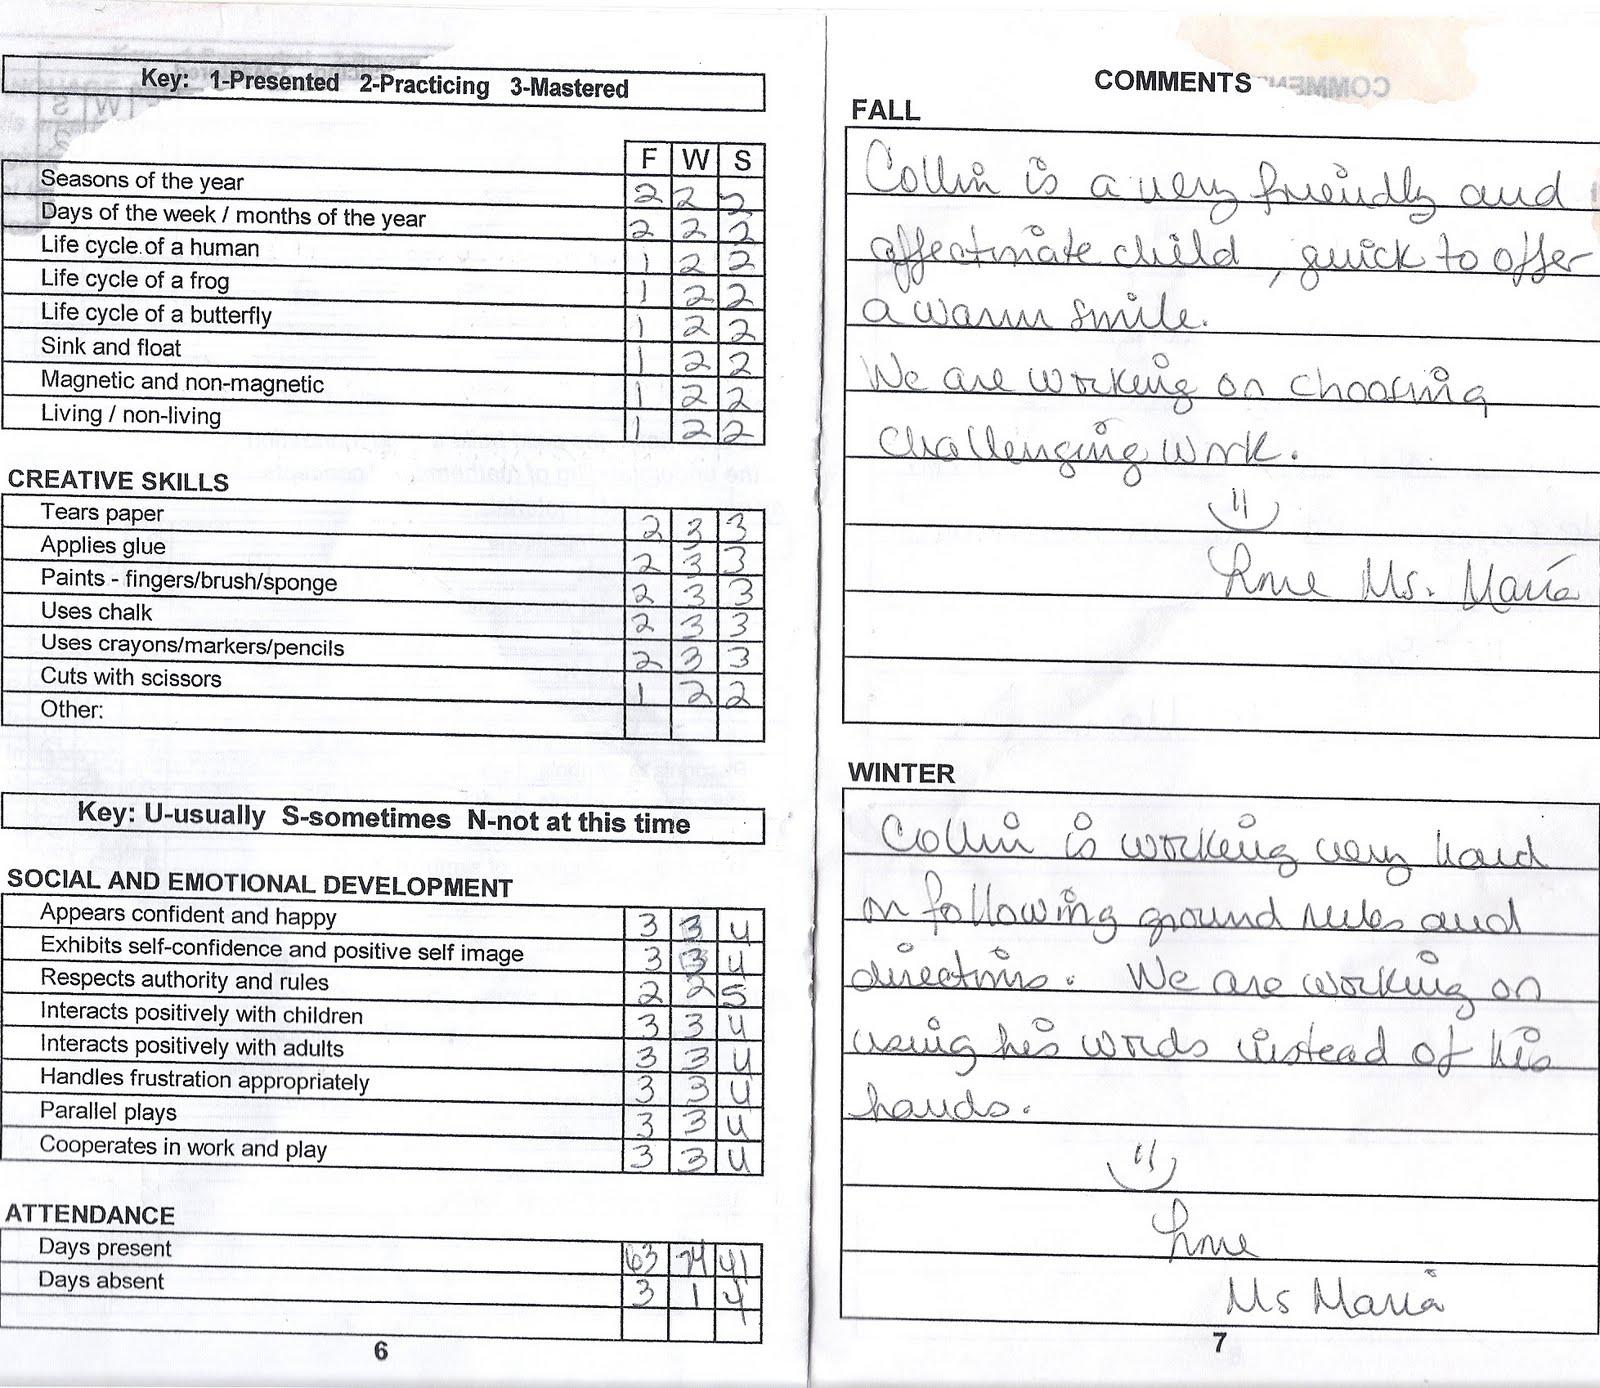 Key: 1-Presented 2-Practicing 3-Mastered
F W S
Seasons of the year 2 2 2
Days of the week / months of the year 2 2 2
Life cycle of a human 1 2 2
Life cycle of a frog 1 2 2
Life cycle of a butterfly 1 2 2
Sink and float 1 2 2
Magnetic and non-magnetic 1 2 2
Living / non-living 1 2 2
CREATIVE SKILLS
Tears paper 2 3 3
Applies glue 2 3 3
Paints - fingers/brush/sponge 2 3 3
Uses chalk 2 3 3
Uses crayons/markers/pencils 2 3 3
Cuts with scissors 1 2 2
Other:
Key: U-usually S-sometimes N-not at this time
SOCIAL AND EMOTIONAL DEVELOPMENT
Appears confident and happy 3 3 U
Exhibits self-confidence and positive self image 3 3 U
Respects authority and rules 2 2 S
Interacts positively with children 3 3 U
Interacts positively with adults 3 3 U
Handles frustration appropriately 3 3 U
Parallel plays 3 3 U
Cooperates in work and play 3 3 U
ATTENDANCE
Days present 63 74 41
Days absent 3 1 4
6
COMMENTS
FALL
Collin is a very friendly and
affectionate child, quick to offer
a warm smile.
We are working on choosing
challenging work.
Love Ms. Maria
WINTER
Collin is working very hard
on following ground rules and
directions. We are working on
using his words instead of his
hands.
Love
Ms Maria
7